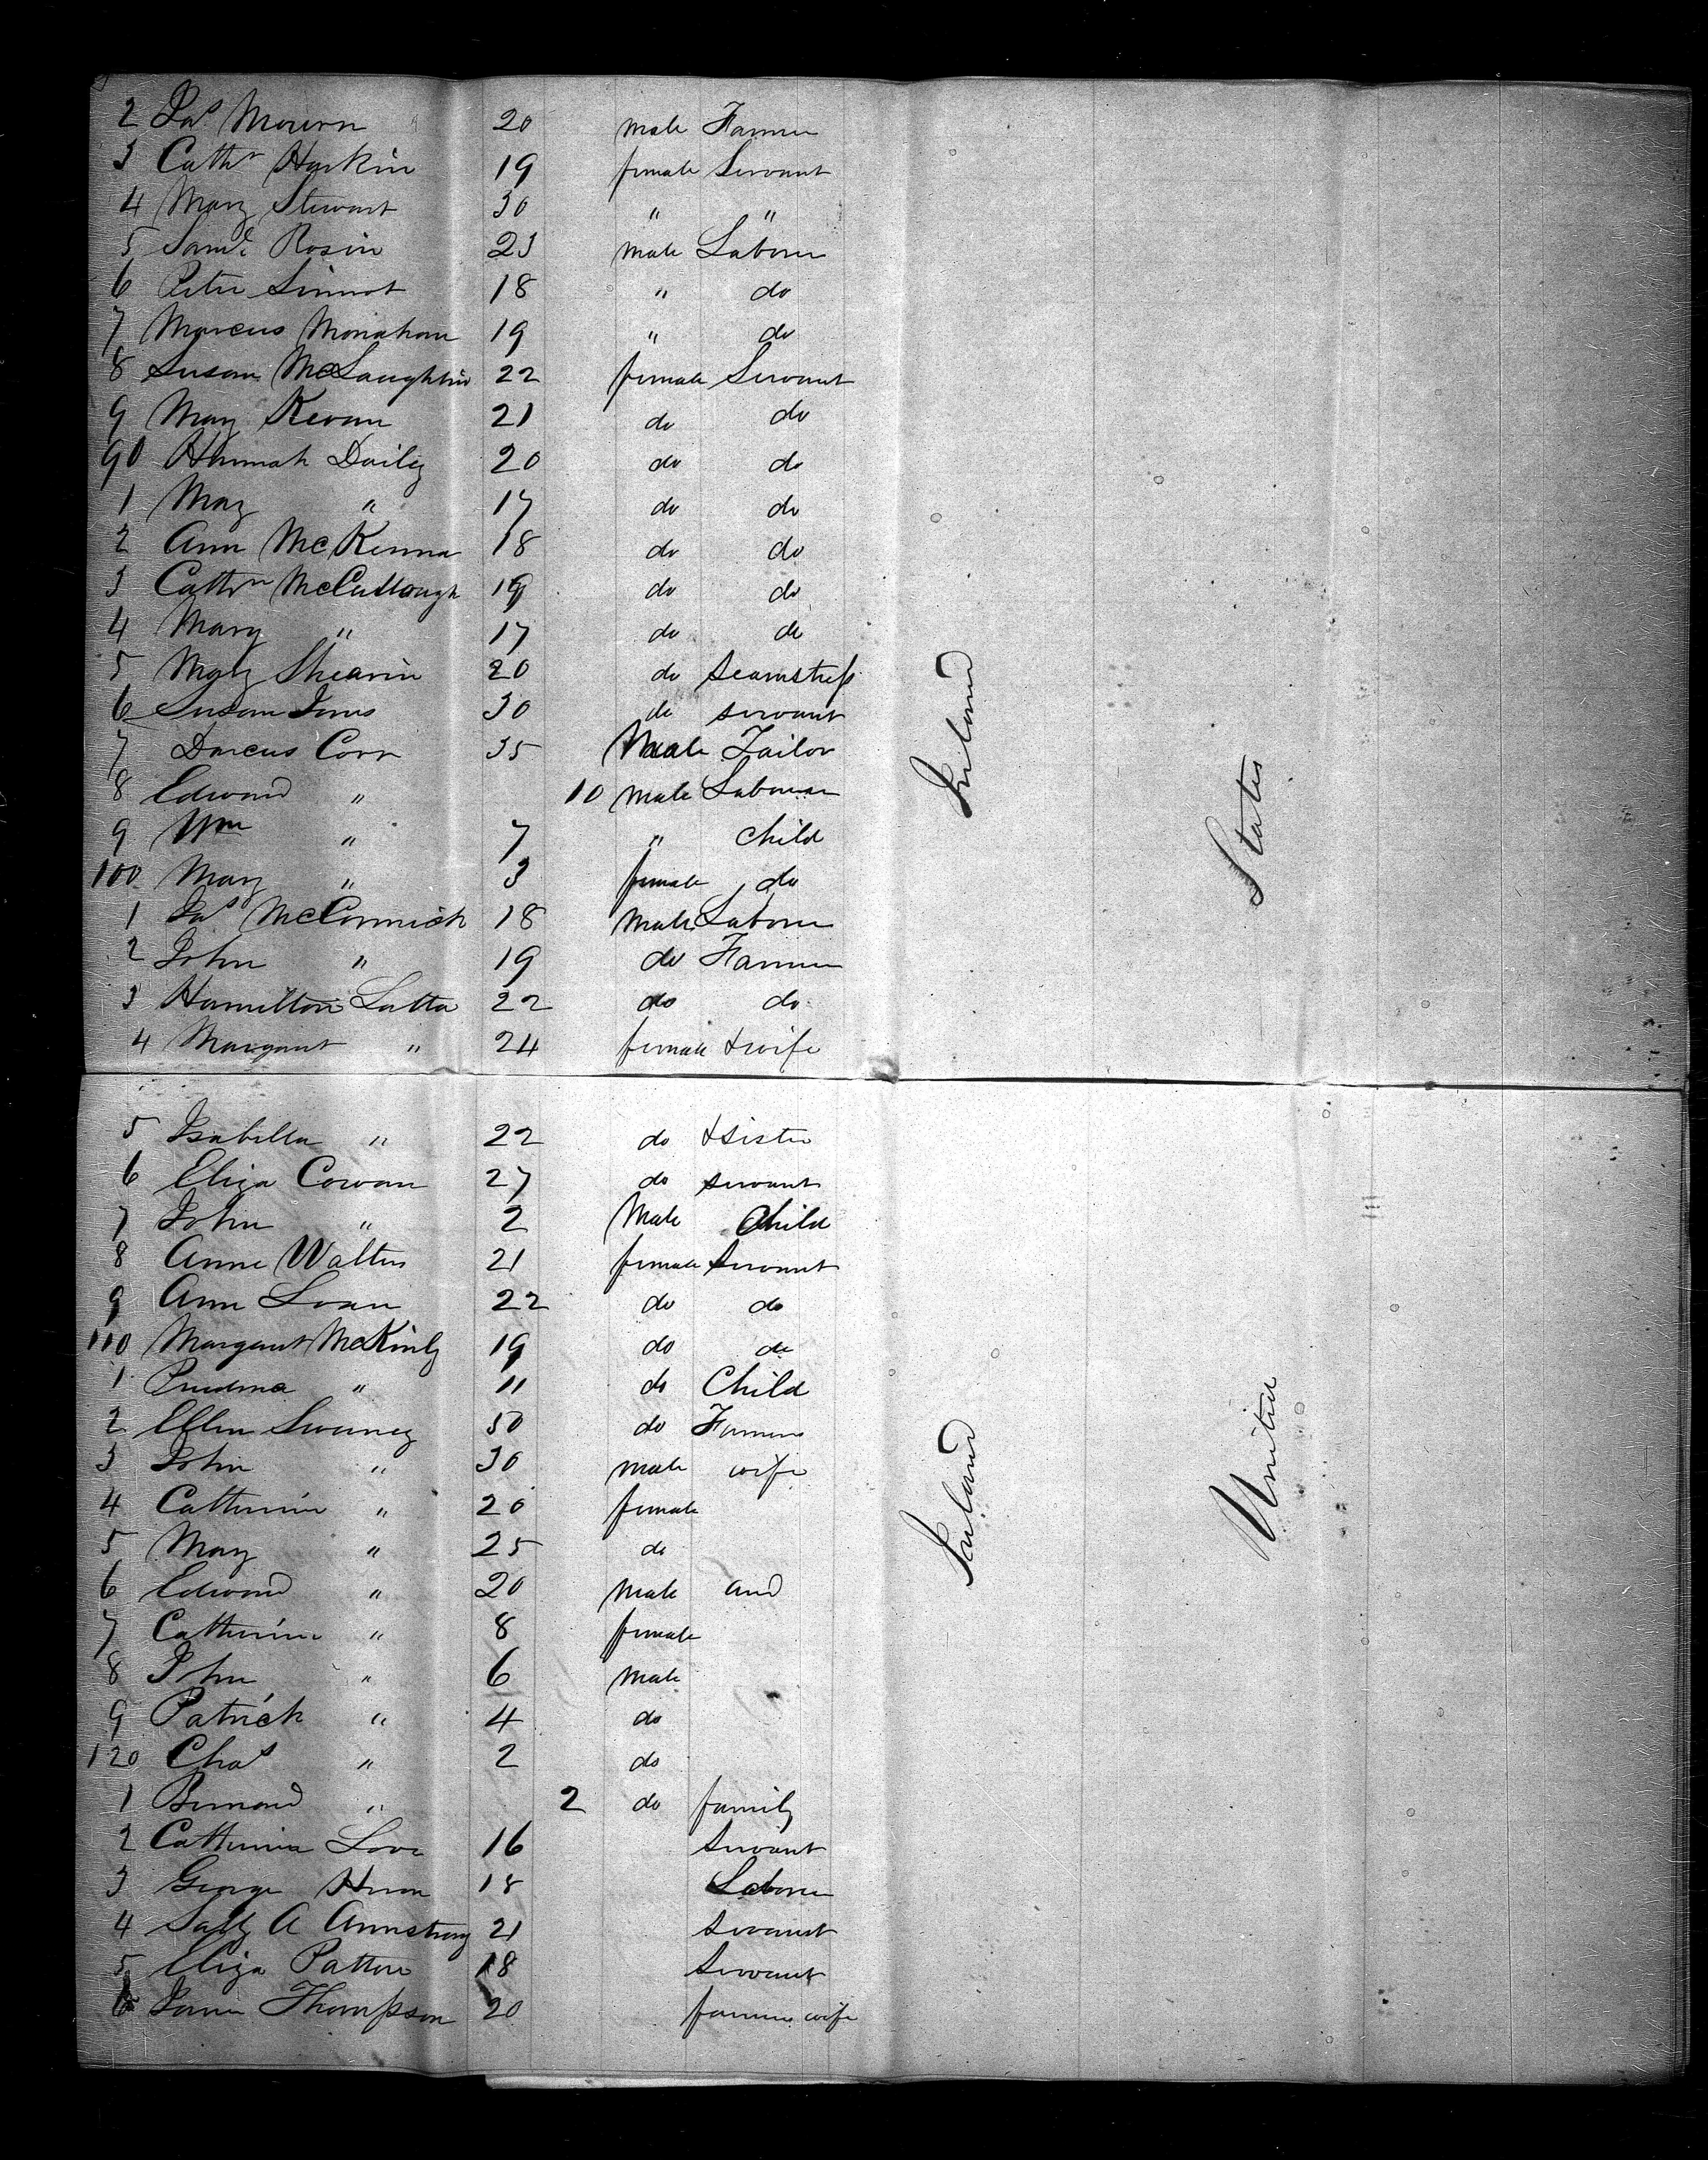 2 Jas Mourn 20 male Farmer
3 Cathn Harkin 19 female Servant
4 Mary Stewart 30 " "
5 Saml Rosin 23 male Laborer
6 Peter Sinnot 18 " do
7 Marcus Monahan 19 " do
8 Susan McLaughlin 22 female Servant
9 Mary Kevan 21 do do
90 Hannah Daily 20 do do
1 Mary " 17 do do
2 Ann McKenna 18 do do
3 Cathrn McCullough 19 do do
4 Mary " 17 do do
5 Mary Shearin 20 do seamstress
6 Susan 30 do servant
7 Darcus Corr 35 Male Tailor
8 Edward " 10 male Laborer
9 Wm " 7 " child
100 Mary " 3 female do
1 Jas McCormick 18 male Laborer
2 John " 19 do Farmer
3 Hamilton Latta 22 do do
4 Margaret " 24 female & wife
5 Isabella " 22 do & sister
6 Eliza Cowan 27 do servant
7 John " 2 Male Child
8 Anne Walters 21 female servant
9 Ann Loan 22 do do
110 Margaret McKinly 19 do do
1 " 11 do Child
2 Ellen Sweeney 50 do Farmer
3 John " 30 male wife
4 Catherine " 20 female
5 Mary " 25 do
6 Edward " 20 male and
7 Catherine " 8 female
8 John " 6 male
9 Patrick " 4 do
120 Chas " 2 do
1 Bernard " 2 do family
2 Catherine Love 16 servant
3 George Heron 18 Laborer
4 Sally A Armstrong 21 servant
5 Eliza Patton 18 servant
6 Thompson 20 farmers wife
Ireland
Ireland
United States